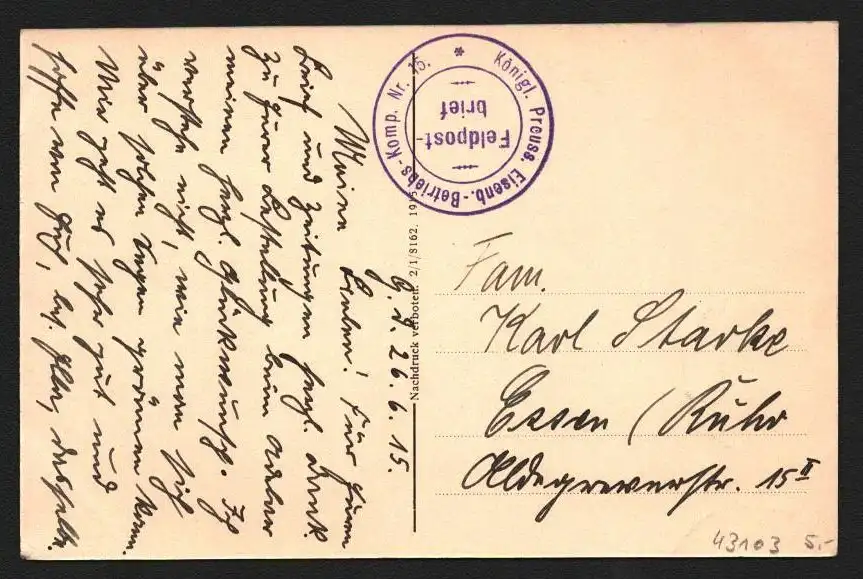 26.6.15.
Meine Lieben! Für Euren
Brief und Zeitungen herzl. Dank.
Zu Eurer Bestellung beim Adler
meinen herzl. Glückwunsch. Ich
verstehe nicht, wie man sich
über solchen Segen grämen kann.
Mir geht es sehr gut und
hoffe von Euch, bes. Ella, dasselbe.
Nachdruck verboten. 2/1/8162.
Königl. Preuss. Eisenb.-Betriebs-Komp. Nr. 15. *
Feldpost-
brief
Fam.
Karl Starke
Essen (Ruhr
Aldegreverstr. 15 II
43103 5.-